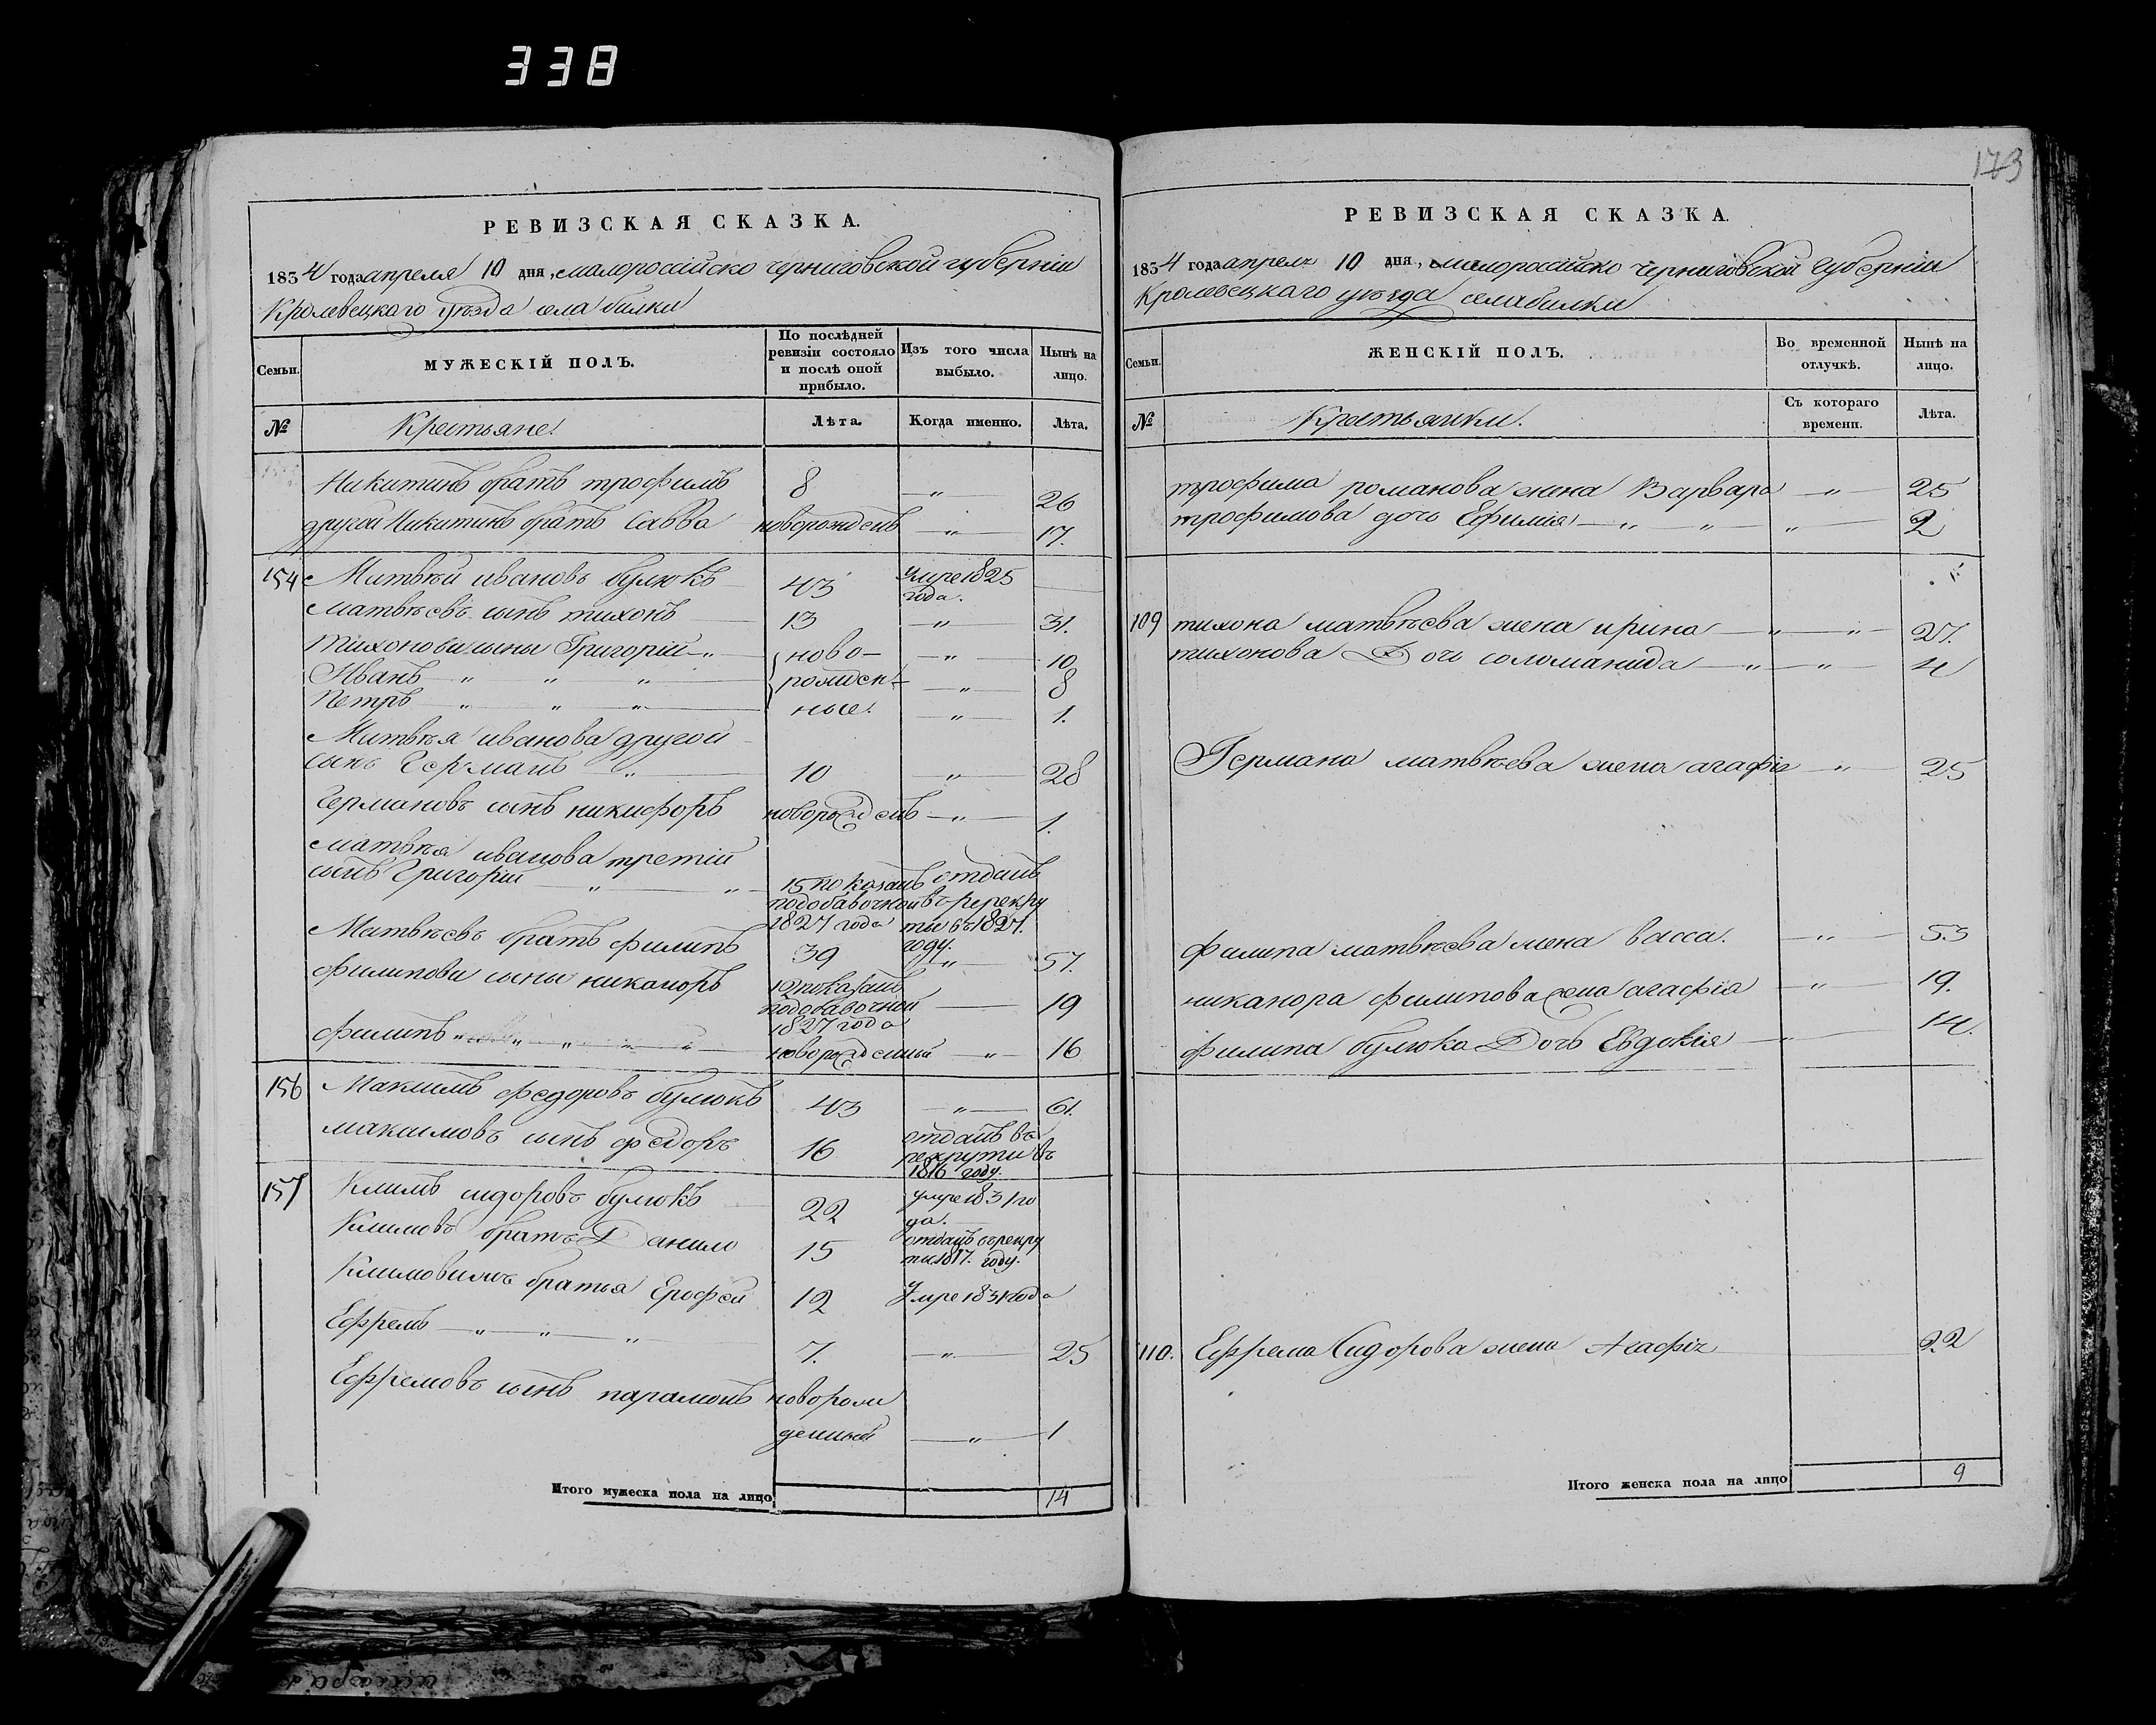 338
РЕВИЗСКАЯ СКАЗКА.
1834 года апреля 10 дня, малороссійско черниговской губерніи
Кролевецкаго уѣзда села билки
Семьи.
МУЖЕСКІЙ ПОЛЪ.
По послѣдней ревизіи состояло и послѣ оной прибыло.
Изъ того числа выбыло.
Нынѣ на лицо.
№
Крестьяне.
Лѣта.
Когда именно.
Лѣта.
Никитинъ братъ трофимъ 8 — „ — 26
другой Никитинъ братъ Савва новорожденъ — „ — 17.
154 Матвѣй ивановъ булюкъ 43 Умре 1825 года.
матвѣевъ сынъ тихонъ 13 — „ — 31.
тихонови сыны Григорій „ ново- — „ — 10
Иванъ „ „ „ рожден- — „ — 8
Петръ „ „ „ ные. — „ — 1.
Матвѣя иванова другой
сынъ Германъ „ 10 „ 28
Германовъ сынъ никифоръ новорожденъ — „ — 1.
матвѣя иванова третій
сынъ Григорій „ „ 15 показанъ подобавочной 1827 года отданъ въ рекруты въ 1827. году.
Матвѣевъ братъ филипъ 39 „ 57.
филипови сыны никаноръ 12 показанъ подобавочной 1827 года — 19
филипъ „ „ „ „ „ новорожденный — „ 16
156 Максимъ федоровъ булюкъ 43 — „ — 61.
максимовъ сынъ федоръ 16 отданъ въ рекруты въ 1816 году.
157 Климъ сидоровъ булюкъ 22 умре 1831 года.
Климовъ братъ Данило 15 отданъ в рекруты 1817. году.
Климовилъ братья Ерофей 12 Умре 1831 года
Ефремъ — „ — „ — „ — 7. — „ — 25
Ефремовъ сынъ парамонъ новорожденный — „ — 1
Итого мужеска пола на лицо 14
173
РЕВИЗСКАЯ СКАЗКА.
1834 года апреля 10 дня, малороссійско черниговской губерніи
Кролевецкаго уѣзда села билки
Семьи.
ЖЕНСКІЙ ПОЛЪ.
Во временной отлучкѣ.
Нынѣ на лицо.
№
Крестьянки.
Съ котораго времени.
Лѣта.
трофима романова жена Варвара — „ — 25
трофимова дочь Ефимія — „ — „ — „ 2
109 тихона матвѣева жена ирина — „ — „ — 27.
тихонова Дочь соломанида — „ — „ — 4
Германа матвѣева жена агафія — „ — 25
филипа матвѣева жена васса. — „ — 53
никанора филипова жена агафія — „ — 19.
филипа булюка Дочь Евдокія — „ — 14.
110. Ефрема Сидорова жена Агафія 22
Итого женска пола на лицо 9